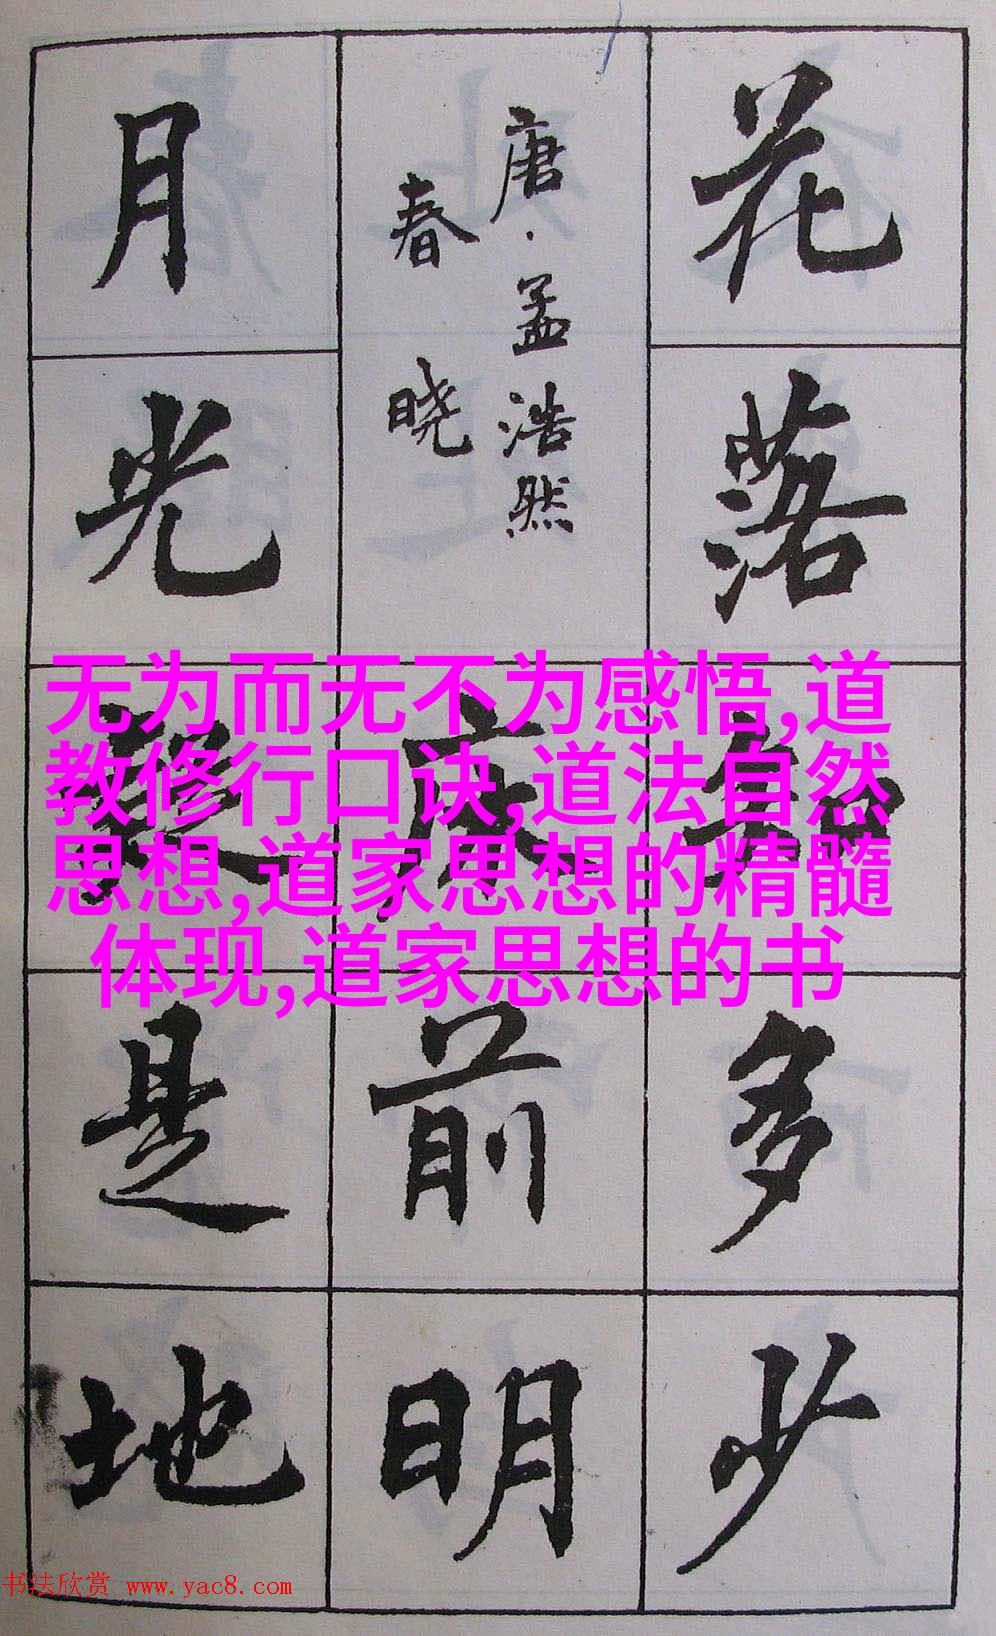 花落知多少
唐·孟浩然
春晓
床前明
月光疑是地
无为而无不为感悟,道
教修行口诀,道法自然
思想,道家思想的精髓
体现,道家思想的书
书法欣赏 www.yac8.com